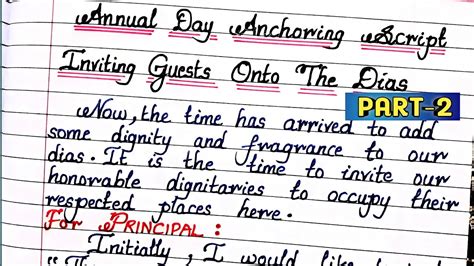 Annual Day Anchoring Script
Inviting Guests Onto The Dias
PART-2
Now, the time has arrived to add
some dignity and fragrance to our
dias. It is the time to invite our
honorable dignitaries to occupy their
respected places here.
For PRINCIPAL :
Initially, I would like